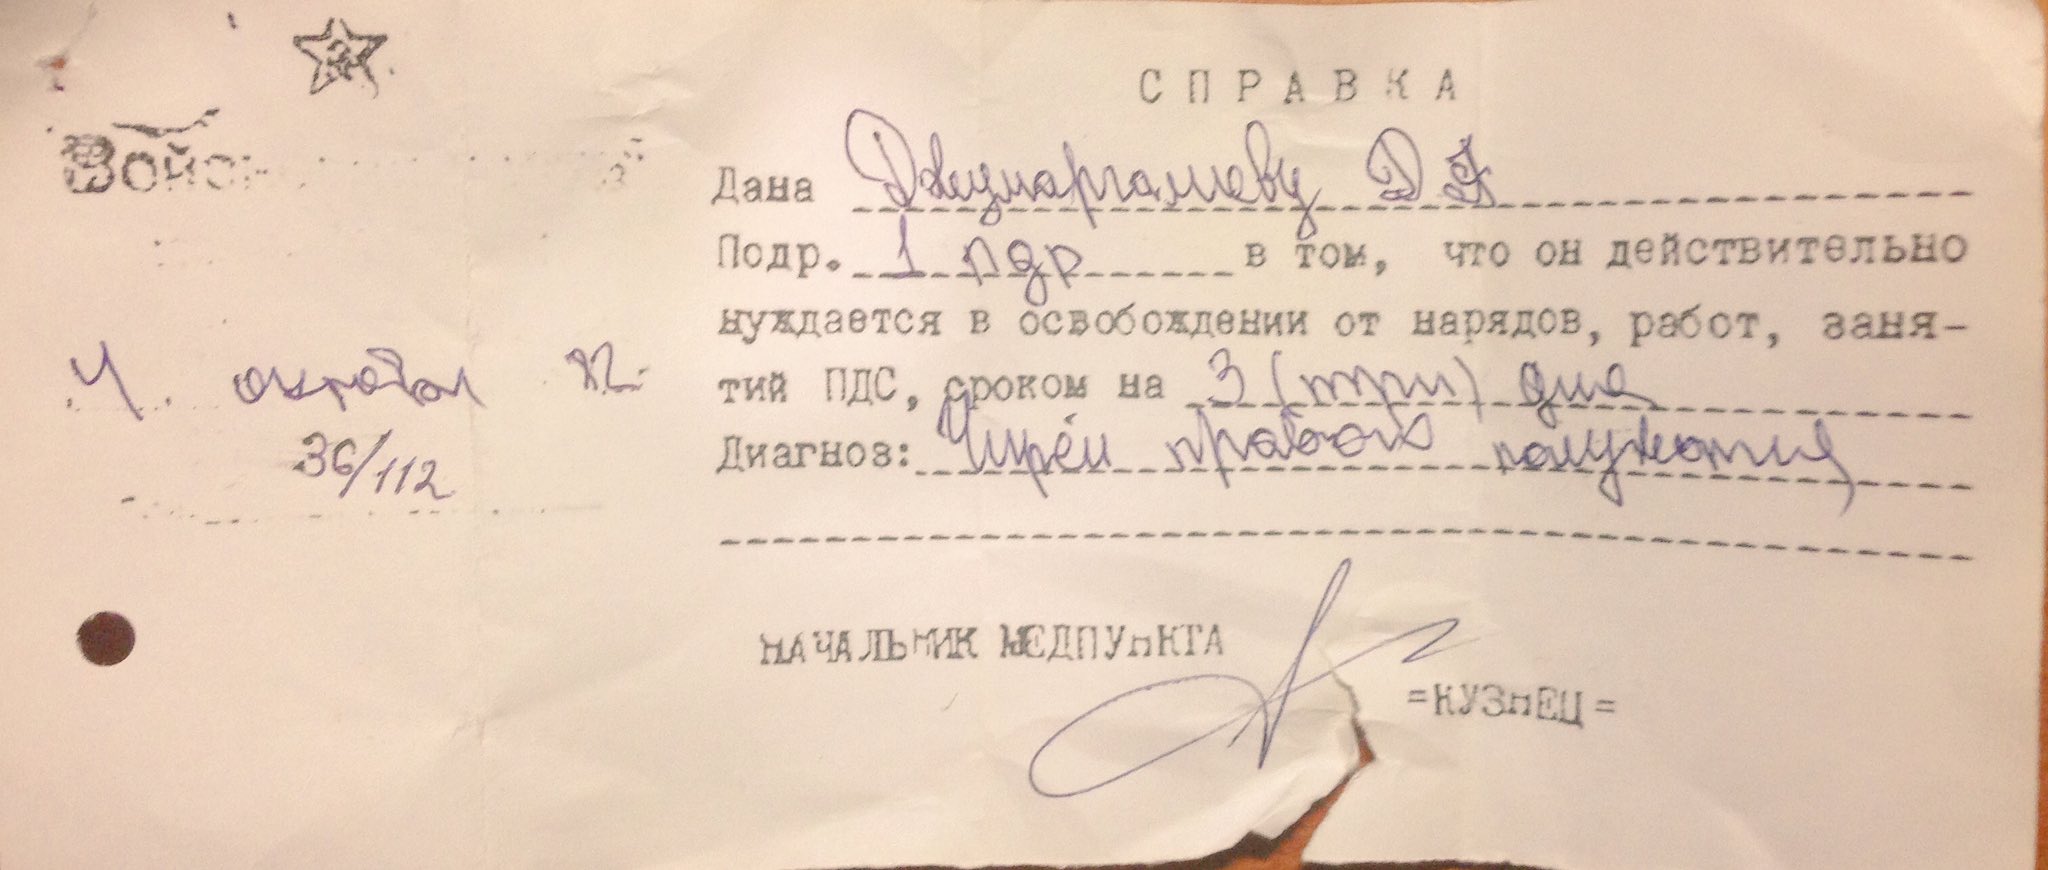 СПРАВКА
Войс
Дана Джумаргалиеву Д
Подр. 1 пдр в том, что он действительно
нуждается в освобождении от нарядов, работ, заня-
4 октября
тий ПДС, сроком на 3 (три) дня
36/112
Диагноз: Чирей правого полужопия
НАЧАЛЬНИК МЕДПУНКТА
=КУЗНЕЦ=